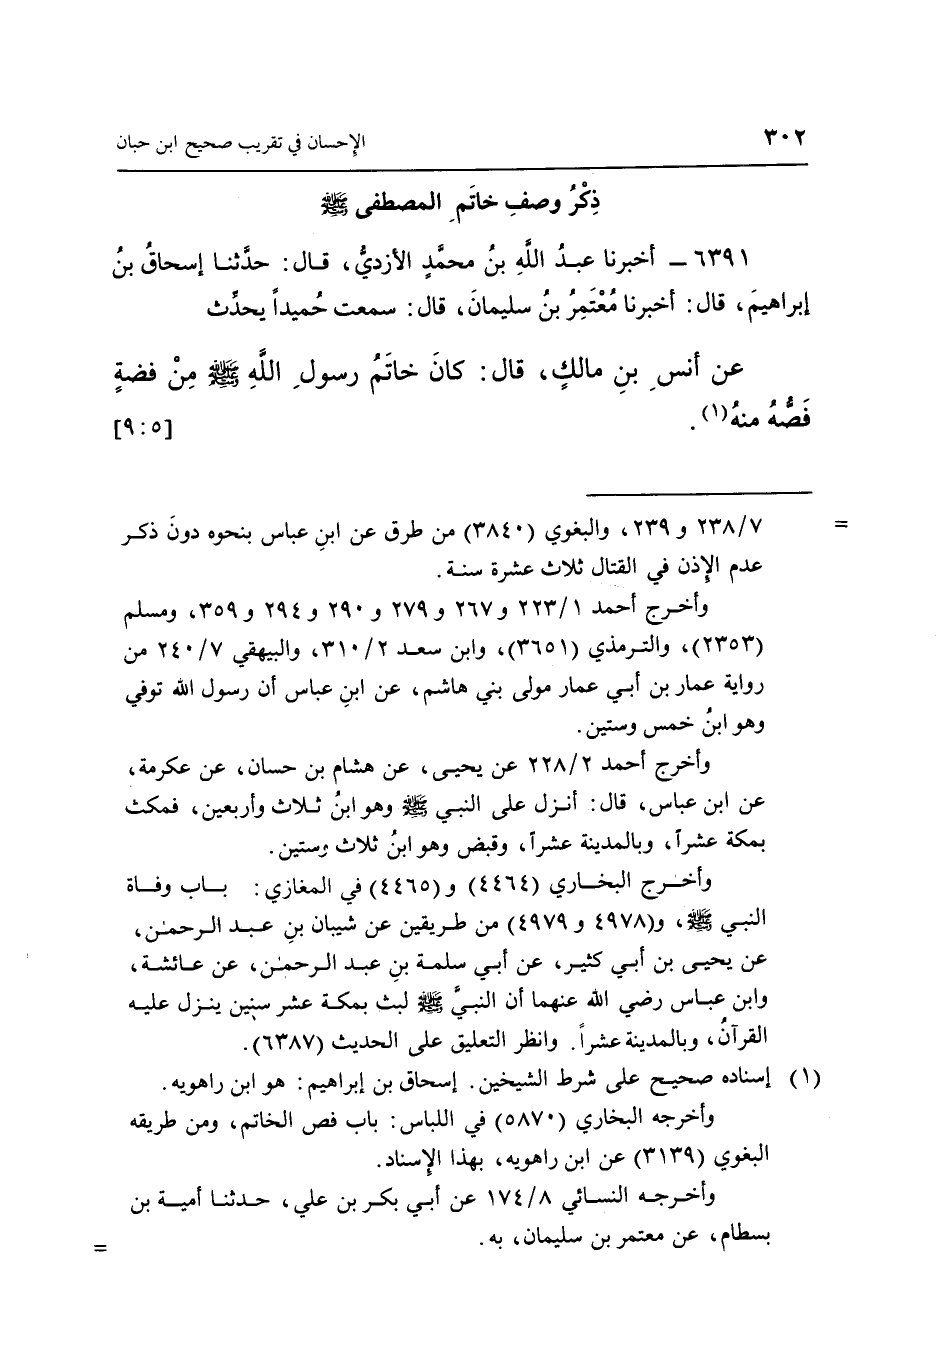 ٣٠٢ الإحسان في تقريب صحيح ابن حبان
ذِكْرُ وصفِ خاتَمِ المصطفى ﷺ
٦٣٩١ ـ أخبرنا عبدُ اللَّهِ بنُ محمَّدٍ الأزديُّ، قال: حدَّثنا إسحاقُ بنُ
إبراهيمَ، قال: أخبرنا مُعْتَمِرُ بنُ سليمانَ، قال: سمعت حُميداً يحدِّث
عن أنسِ بنِ مالكٍ، قال: كانَ خاتَمُ رسولِ اللَّهِ ﷺ مِنْ فضةٍ
فَصُّهُ منهُ(١). [٥:٩]
= ٢٣٨/٧ و ٢٣٩، والبغوي (٣٨٤٠) من طرق عن ابنِ عباس بنحوه دونَ ذكر
عدم الإذن في القتال ثلاث عشرة سنة.
وأخرج أحمد ٢٢٣/١ و٢٦٧ و ٢٧٩ و ٢٩٠ و ٢٩٤ و٣٥٩، ومسلم
(٢٣٥٣)، والترمذي (٣٦٥١)، وابن سعد ٣١٠/٢، والبيهقي ٢٤٠/٧ من
رواية عمار بن أبي عمار مولى بني هاشم، عن ابنِ عباس أن رسول الله توفي
وهو ابنُ خمس وستين.
وأخرج أحمد ٢٢٨/٢ عن يحيى، عن هشام بن حسان، عن عكرمة،
عن ابن عباس، قال: أنزل على النبي ﷺ وهو ابنُ ثلاث وأربعين، فمكث
بمكة عشراً، وبالمدينة عشراً، وقبض وهو ابنُ ثلاث وستين.
وأخرج البخاري (٤٤٦٤) و(٤٤٦٥) في المغازي: باب وفاة
النبي ﷺ، و(٤٩٧٨ و ٤٩٧٩) من طريقين عن شيبان بنِ عبد الرحمٰن،
عن يحيى بن أبي كثير، عن أبي سلمة بنِ عبد الرحمٰن، عن عائشة،
وابن عباس رضي الله عنهما أن النبيَّ ﷺ لبث بمكة عشر سنين ينزل عليه
القرآنُ، وبالمدينة عشراً. وانظر التعليق على الحديث (٦٣٨٧).
(١) إسناده صحيح على شرط الشيخين. إسحاق بن إبراهيم: هو ابن راهويه.
وأخرجه البخاري (٥٨٧٠) في اللباس: باب فص الخاتم، ومن طريقه
البغوي (٣١٣٩) عن ابن راهويه، بهذا الإسناد.
وأخرجه النسائي ١٧٤/٨ عن أبي بكر بن علي، حدثنا أمية بن
بسطام، عن معتمر بن سليمان، به. =